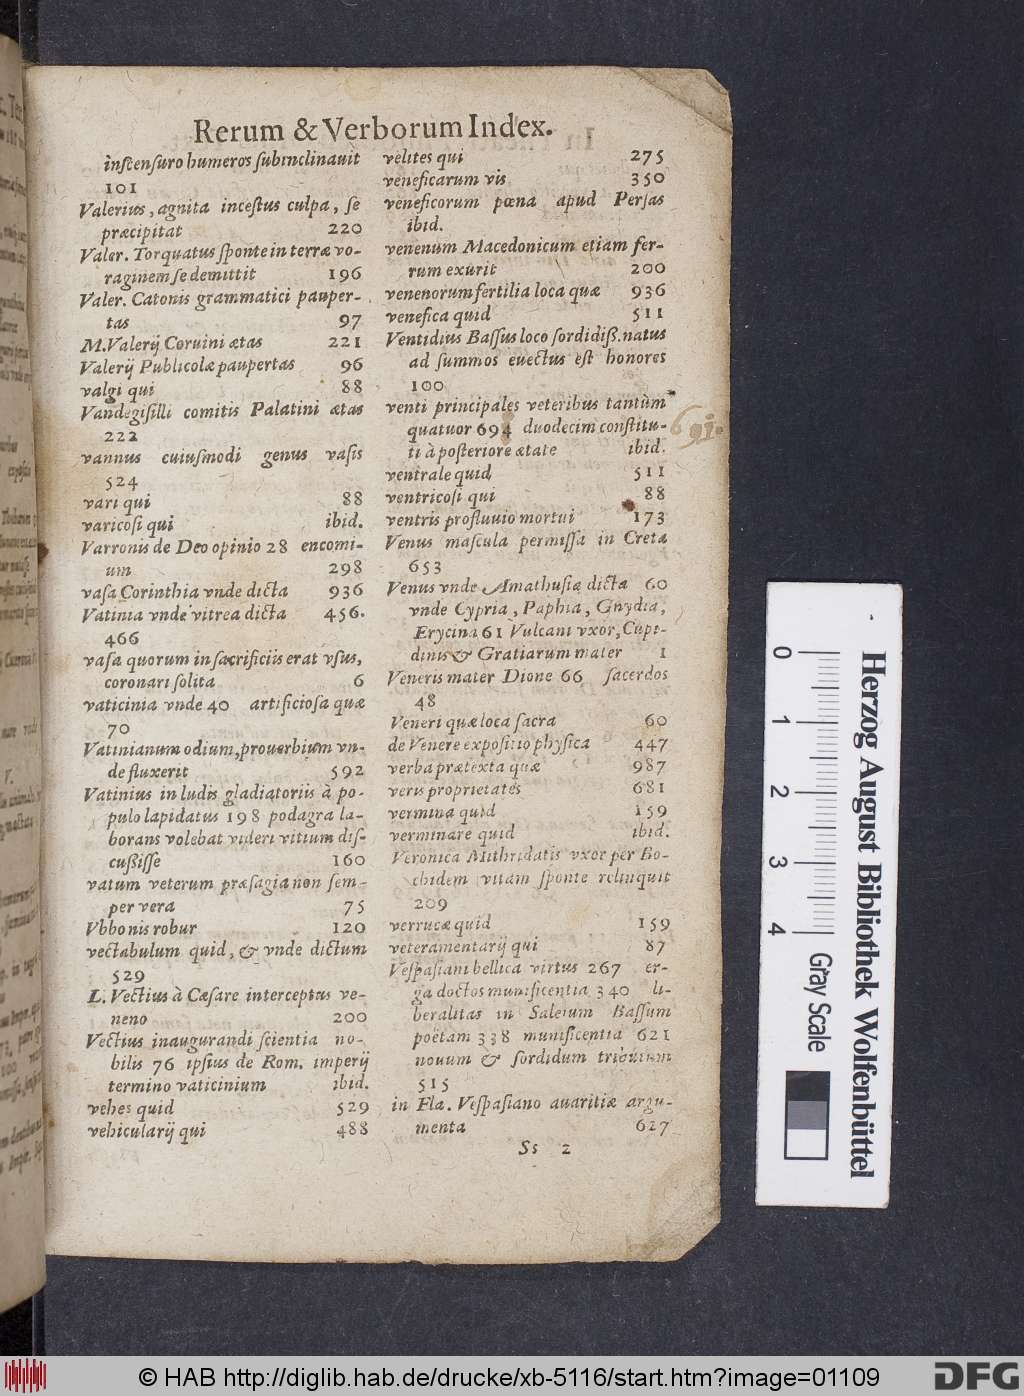 Rerum & Verborum Index.
inscensuro humeros subinclinavit
101
Valerius, agnita incestus culpa, se
præcipitat 220
Valer. Torquatus sponte in terræ vo-
raginem se demittit 196
Valer. Catonis grammatici pauper-
tas 97
M. Valerij Corvini ætas 221
Valerij Publicolæ paupertas 96
valgi qui 88
Vandegisilli comitis Palatini ætas
222
vannus cuiusmodi genus vasis
524
vari qui 88
varicosi qui ibid.
Varronis de Deo opinio 28 encomi-
um 298
vasa Corinthia vnde dicta 936
Vatinia vnde vitrea dicta 456.
466
vasa quorum in sacrificiis erat vsus,
coronari solita 6
vaticinia vnde 40 artificiosa quæ
70
Vatinianum odium, prouerbium vn-
de fluxerit 592
Vatinius in ludis gladiatoriis à po-
pulo lapidatus 198 podagra la-
borans volebat videri vitium dis-
cußisse 160
vatum veterum præsagia non sem-
per vera 75
Vbbonis robur 120
vectabulum quid, & vnde dictum
529
L. Vectius à Cæsare interceptus ve-
neno 200
Vectius inaugurandi scientia no-
bilis 76 ipsius de Rom. imperij
termino vaticinium ibid.
vehes quid 529
vehicularij qui 488
velites qui 275
veneficarum vis 350
veneficorum pœna apud Persas
ibid.
venenum Macedonicum etiam fer-
rum exurit 200
venenorum fertilia loca quæ 936
venefica quid 511
Ventidius Bassus loco sordidiß. natus
ad summos euectus est honores
100
venti principales veteribus tantùm
quatuor 694 duodecim constitu-
ti à posteriore ætate ibid.
691.
ventrale quid 511
ventricosi qui 88
ventris profluuio mortui 173
Venus mascula permissa in Creta
653
Venus vnde Amathusiæ dicta 60
vnde Cypria, Paphia, Gnydia,
Erycina 61 Vulcani vxor, Cupi-
dinis & Gratiarum mater 1
Veneris mater Dione 66 sacerdos
48
Veneri quæ loca sacra 60
de Venere expositio physica 447
verba prætexta quæ 987
veris proprietates 681
vermina quid 159
verminare quid ibid.
Veronica Mithridatis vxor per Bo-
chidem vitam sponte relinquit
209
verrucæ quid 159
veteramentarij qui 87
Vespasiani bellica virtus 267 er-
ga doctos munificentia 340 li-
beralitas in Saleium Bassum
poëtam 338 munificentia 621
nouum & sordidum tributum
515
in Fla. Vespasiano auaritiæ argu-
menta 627
Ss 2
0 1 2 3 4
Herzog August Bibliothek Wolfenbüttel
Gray Scale
© HAB http://diglib.hab.de/drucke/xb-5116/start.htm?image=01109
DFG